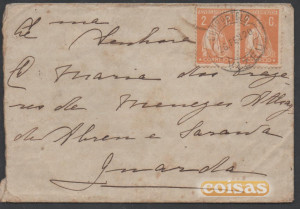 ma
Senhora
D Maria dos Praze
res de Menezes
de Abreu e Saraiva
Guarda
2 C
coisas